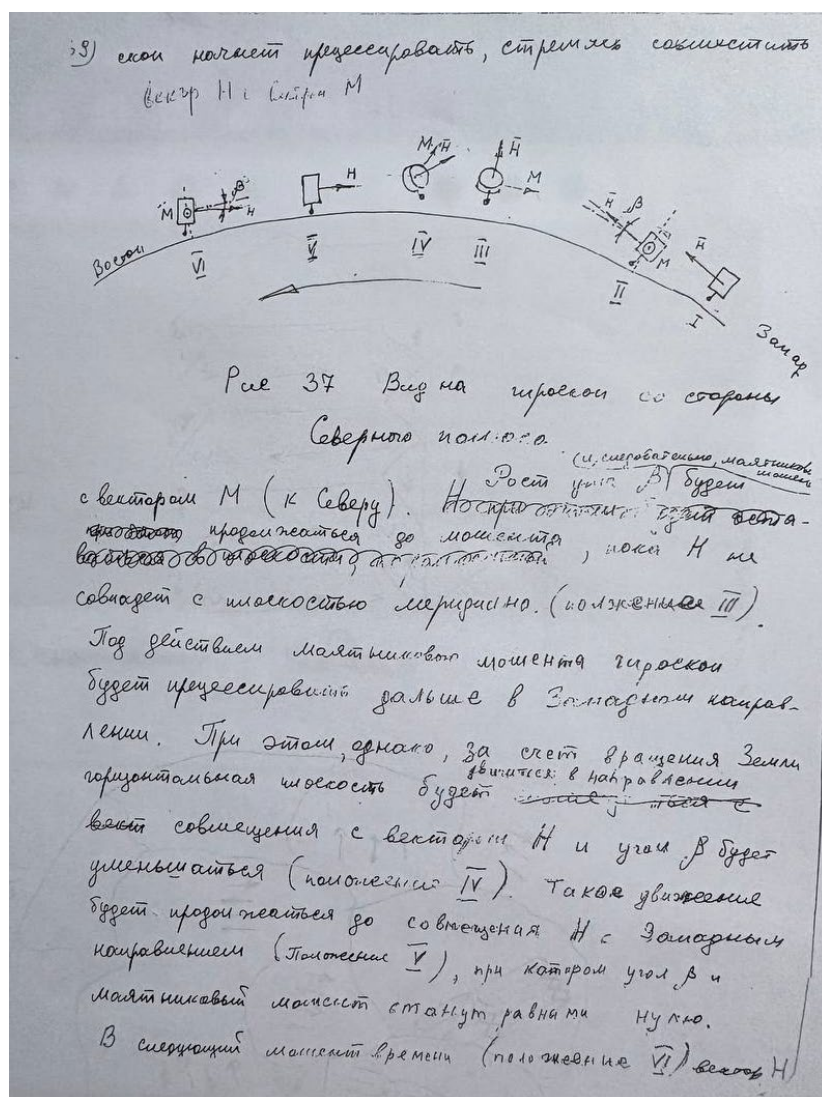 39) скоп начнет прецессировать, стремясь совместить
вектор H с вектором M
M β H
VI
H
V
M H
IV
H M
III
H β M
II
H
I
Восток
Запад
Рис 37 Вид на гироскоп со стороны
Северного полюса
(и, следовательно, маятниковый момент)
с вектором M (к Северу). Рост угла β будет
продолжаться до момента, пока H не
совпадет с плоскостью меридиана. (положение III).
Под действием маятникового момента гироскоп
будет прецессировать дальше в Западном направ-
лении. При этом, однако, за счет вращения Земли
горизонтальная плоскость будет двигаться в направлении
совмещения с вектором H и угол β будет
уменьшаться (положение IV). Такое движение
будет продолжаться до совмещения H с Западным
направлением (Положение V), при котором угол β и
маятниковый момент станут равными нулю.
В следующий момент времени (положение VI) вектор H